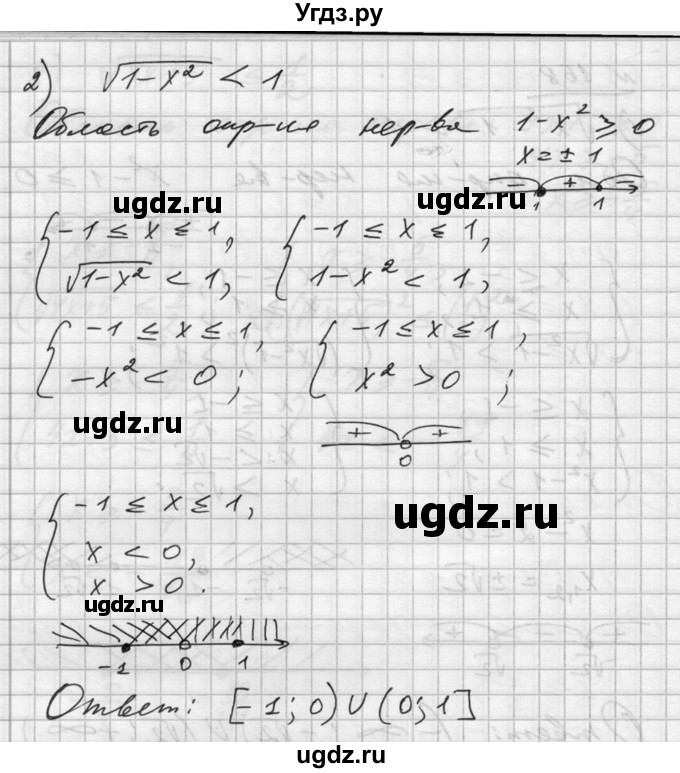 Угдз.ру
2) √1-x² < 1
Область опр-ия нер-ва 1-x² ≥ 0
x = ± 1
- + -
1 1
ugdz.ru ugdz.ru
{ -1 ≤ x ≤ 1, { -1 ≤ x ≤ 1,
√1-x² < 1, 1-x² < 1,
{ -1 ≤ x ≤ 1, { -1 ≤ x ≤ 1,
-x² < 0; x² > 0;
ugdz.ru
+ +
0
{ -1 ≤ x ≤ 1,
ugdz.ru
x < 0,
x > 0.
ugdz.ru
-1 0 1
Ответ: [-1; 0) ∪ (0; 1]
ugdz.ru
ugdz.ru